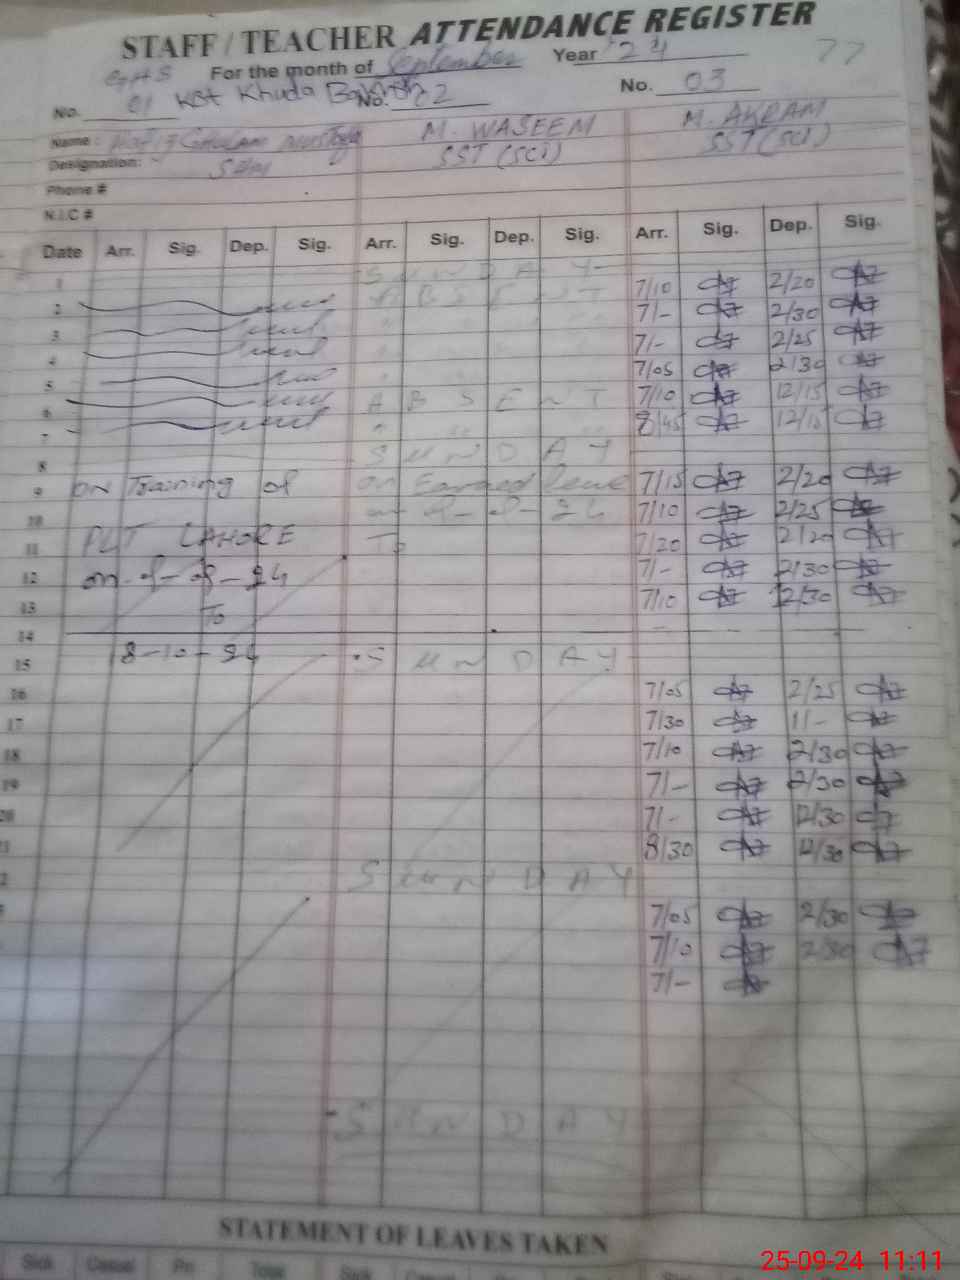 STAFF / TEACHER ATTENDANCE REGISTER
GHS For the month of September Year '24 77
No. 01 Kot Khuda Bakhsh No. 02 No. 03
Name: Hafiz Ghulam Mustafa M. WASEEM M. AKRAM
Designation: SST (SCI) SST (SCI)
Phone #
N.I.C #
Date Arr. Sig. Dep. Sig. Arr. Sig. Dep. Sig. Arr. Sig. Dep. Sig.
1 SUNDAY
2 ABSENT 7/10 2/20
3 7/- 2/30
4 7/- 2/25
5 7/05 2/30
6 ABSENT 7/10 12/15
7 8/45 12/15
8 SUNDAY
9 on Training of on Earned leave 7/15 2/20
10 7/10 2/25
11 LAHORE To 7/20 2/20
12 7/- 2/30
13 To 7/10 12/30
14
15 8-10-24 SUNDAY
16 7/05 2/25
17 7/30 11/-
18 7/10 2/30
19 7/- 2/30
20 7/- 12/30
8/30 12/30
SUNDAY
7/05 2/30
7/10 2/30
7/-
SUNDAY
STATEMENT OF LEAVES TAKEN
Sick Casual Total Sick
25-09-24 11:11